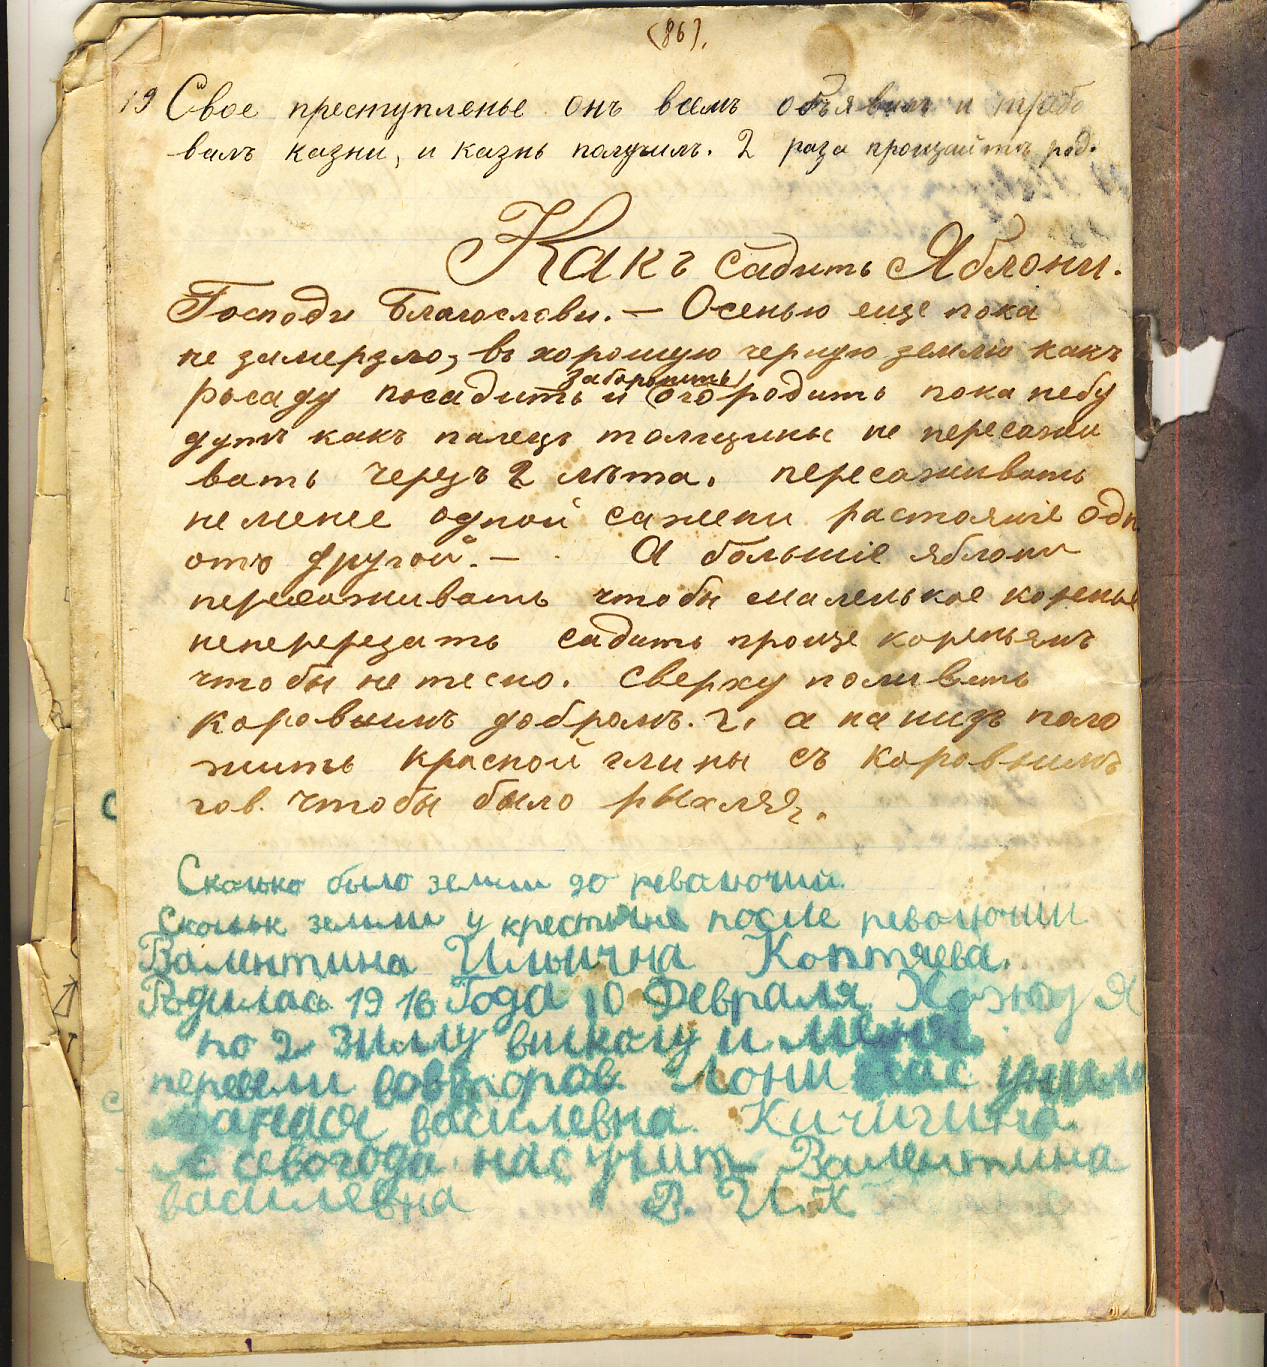 (86).
19 Свое преступленье онъ всемъ объявил и требо
валъ казни, и казнь получилъ. 2 раза прощайте род.
Какъ садить Яблони.
Господи Благослови. — Осенью еще пока
не замерзло, въ хорошую черную землю какъ
росаду посадить и огородить пока небу
заборонить
дутъ какъ палецъ толщины не пересажи
вать черезъ 2 лѣта. пересаживать
неменее одной сажени растояніе одн
отъ другой. — А большіе яблони
пересаживать чтобы маленькое коренье
неперерезать садить проще кореньямъ
чтобы не тесно. Сверху поливать
коровьимъ добромъ. г, а на низъ поло
жить красной глины съ коровьимъ
гов. чтобы было рыхляя.
Сколько было земли до революции
Скольк земли у крестьяне после революции
Валентина Ильична Коптяева.
Родилась 1916 Года 10 Февраля Хожу Я
по 2 зиму вшколу и меня
перевели вовторой Лони нас учила
василевна. Кичигина
А севогода нас учит Валентина
василевна В. И. К